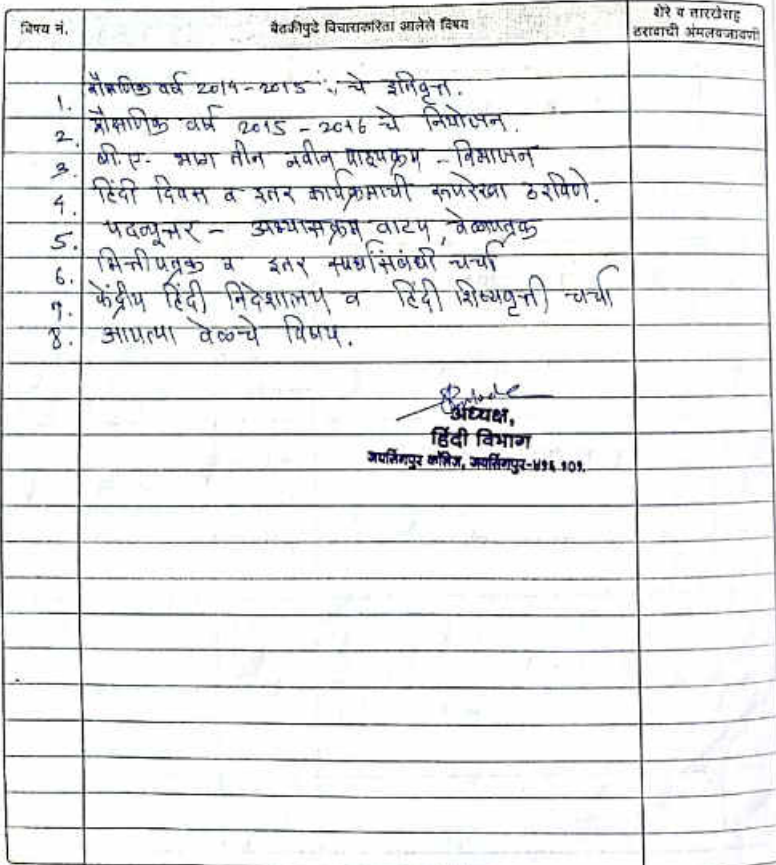 विषय नं.
बैठकीपुढे विचाराकरिता आलेले विषय
शेरे व तारखेसह
ठरावाची अंमलबजावणी
1. शैक्षणिक वर्ष 2014-2015 चे इतिवृत्त.
2. शैक्षणिक वर्ष 2015-2016 चे नियोजन.
3. बी.ए. भाग तीन नवीन पाठ्यक्रम - विभाजन
4. हिंदी दिवस व इतर कार्यक्रमाची रूपरेखा ठरविणे.
5. पदव्युत्तर - अभ्यासक्रम वाटप, वेळापत्रक
6. भित्तीपत्रक व इतर स्पर्धासंबंधी चर्चा
7. केंद्रीय हिंदी निदेशालय व हिंदी शिष्यवृत्ती चर्चा
8. आयत्या वेळचे विषय.
अध्यक्ष,
हिंदी विभाग
जयसिंगपूर कॉलेज, जयसिंगपूर-४१६ १०१.